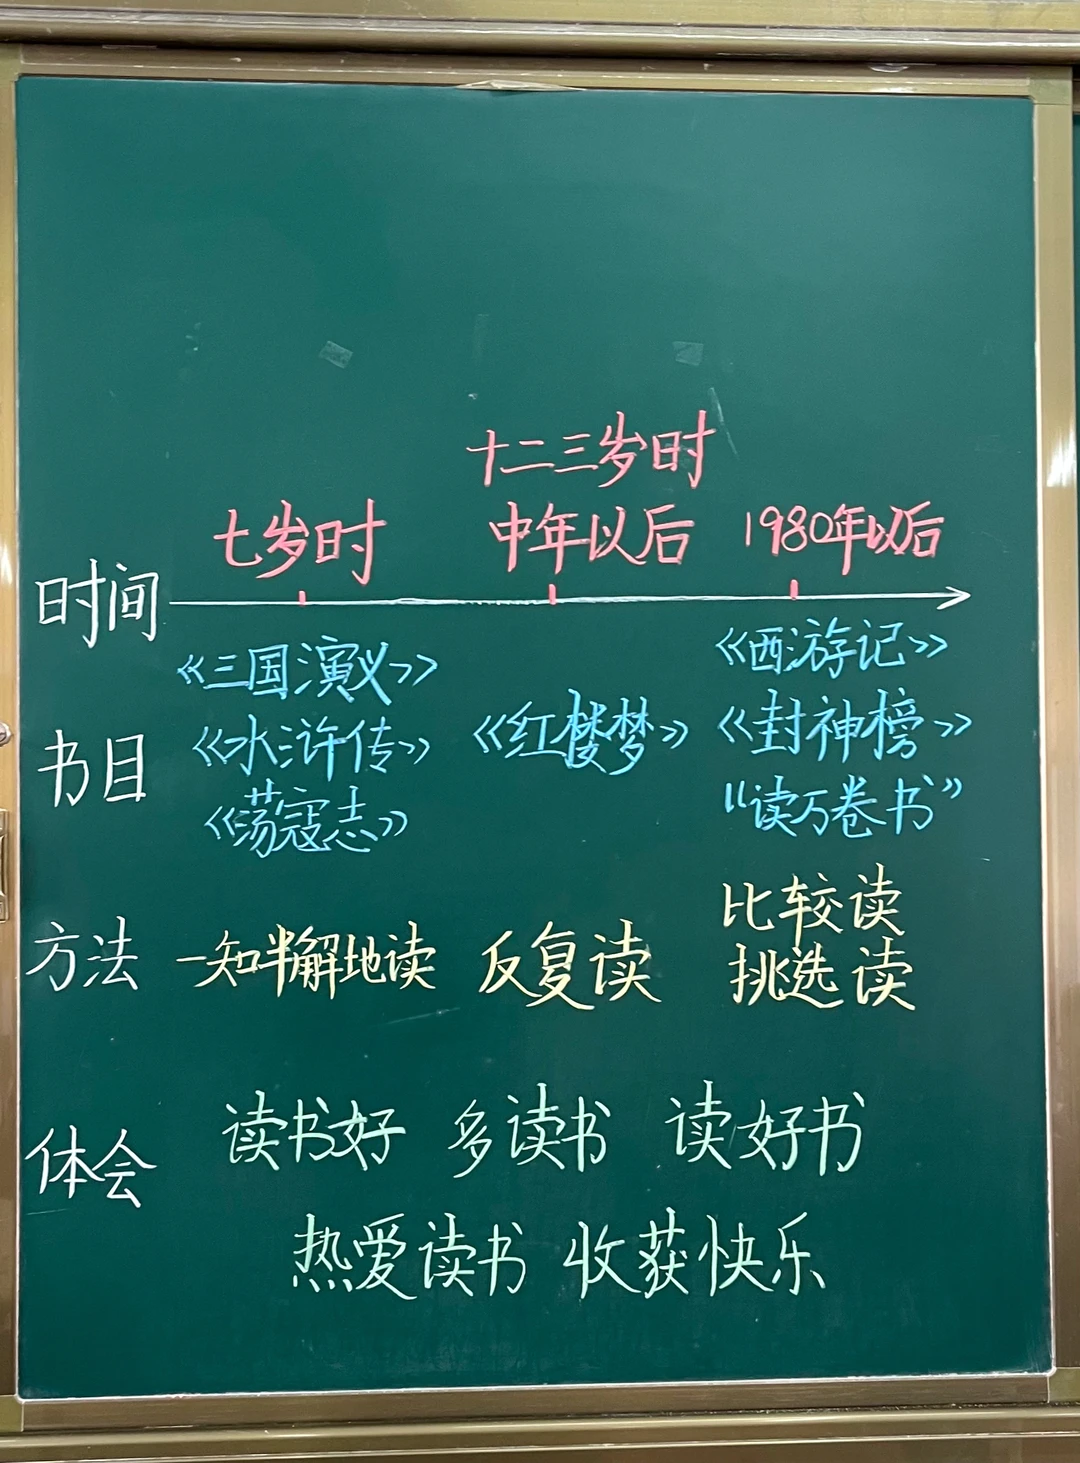 十二三岁时
七岁时 中年以后 1980年以后
时间
《三国演义》 《西游记》
书目 《水浒传》 《红楼梦》 《封神榜》
《荡寇志》 “读万卷书”
比较读
方法 一知半解地读 反复读 挑选读
体会 读书好 多读书 读好书
热爱读书 收获快乐